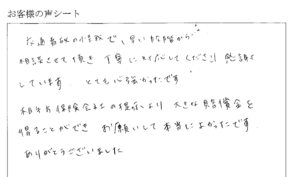 お客様の声シート
交通事故の件で、早い段階から
相談させて頂き 丁寧に対応してくださり 感謝
しています。とても心強かったです
相手方保険会社の提示より 大きな賠償金を
得ることができ お願いして本当によかったです。
ありがとうございました